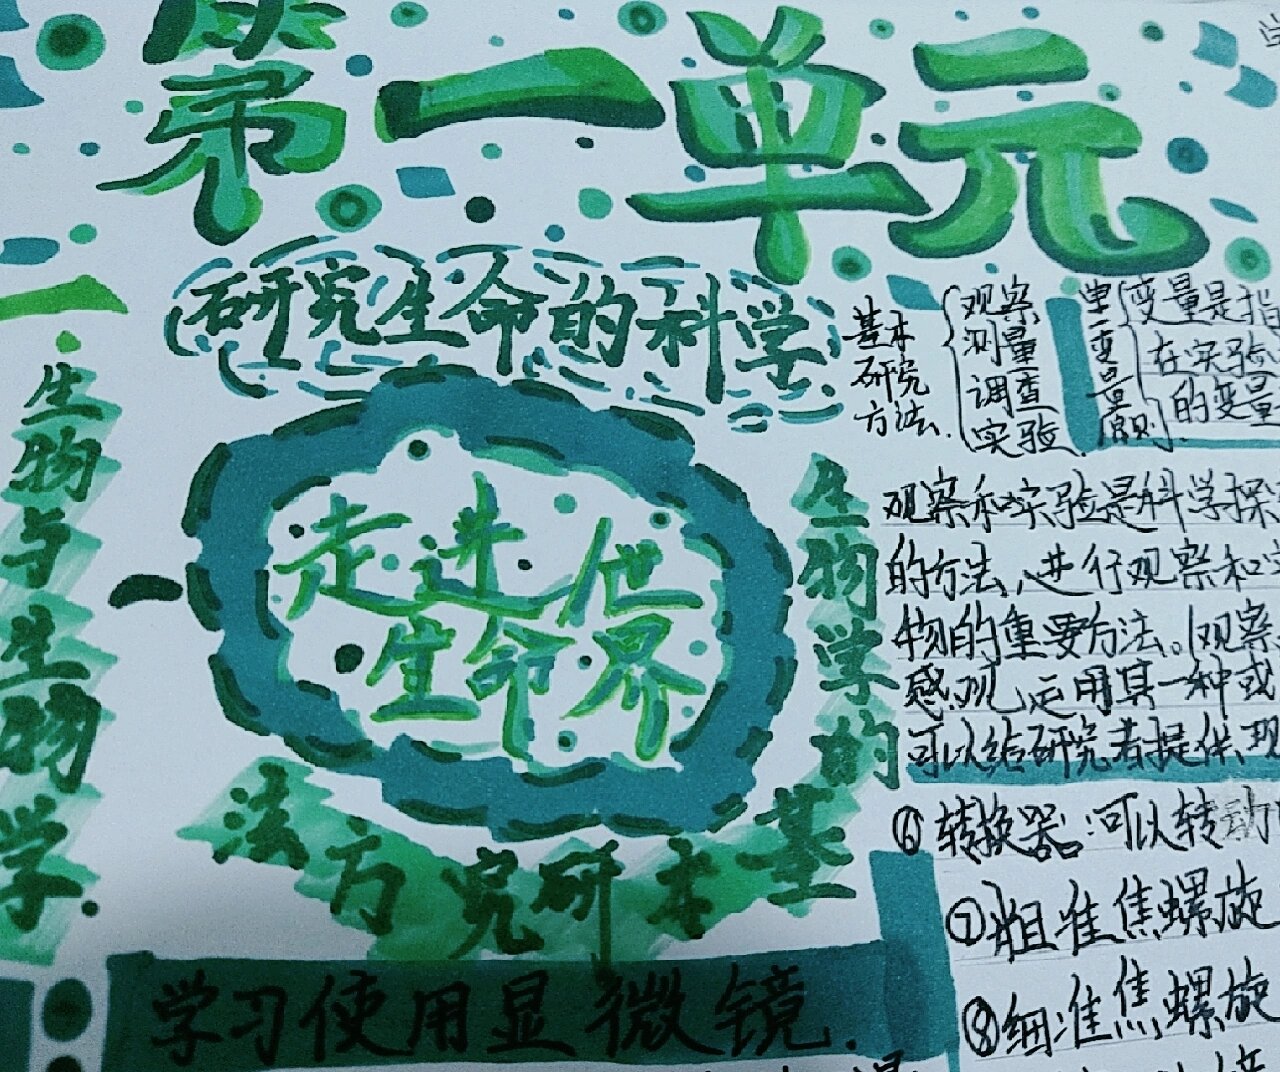 第一单元
研究生命的科学
一
生物与生物学
走进
生命世界
生物学的基本研究方法
学习使用显微镜.
基本研究方法.
观察
测量
调查
实验
单一变量原则.
变量是指
在实验
的变量
观察和实验是科学探
的方法,进行观察和
物的重要方法。观察
感观,运用其一种或
可以给研究者提供现
⑥转换器:可以转动
⑦粗准焦螺旋
⑧细准焦螺旋